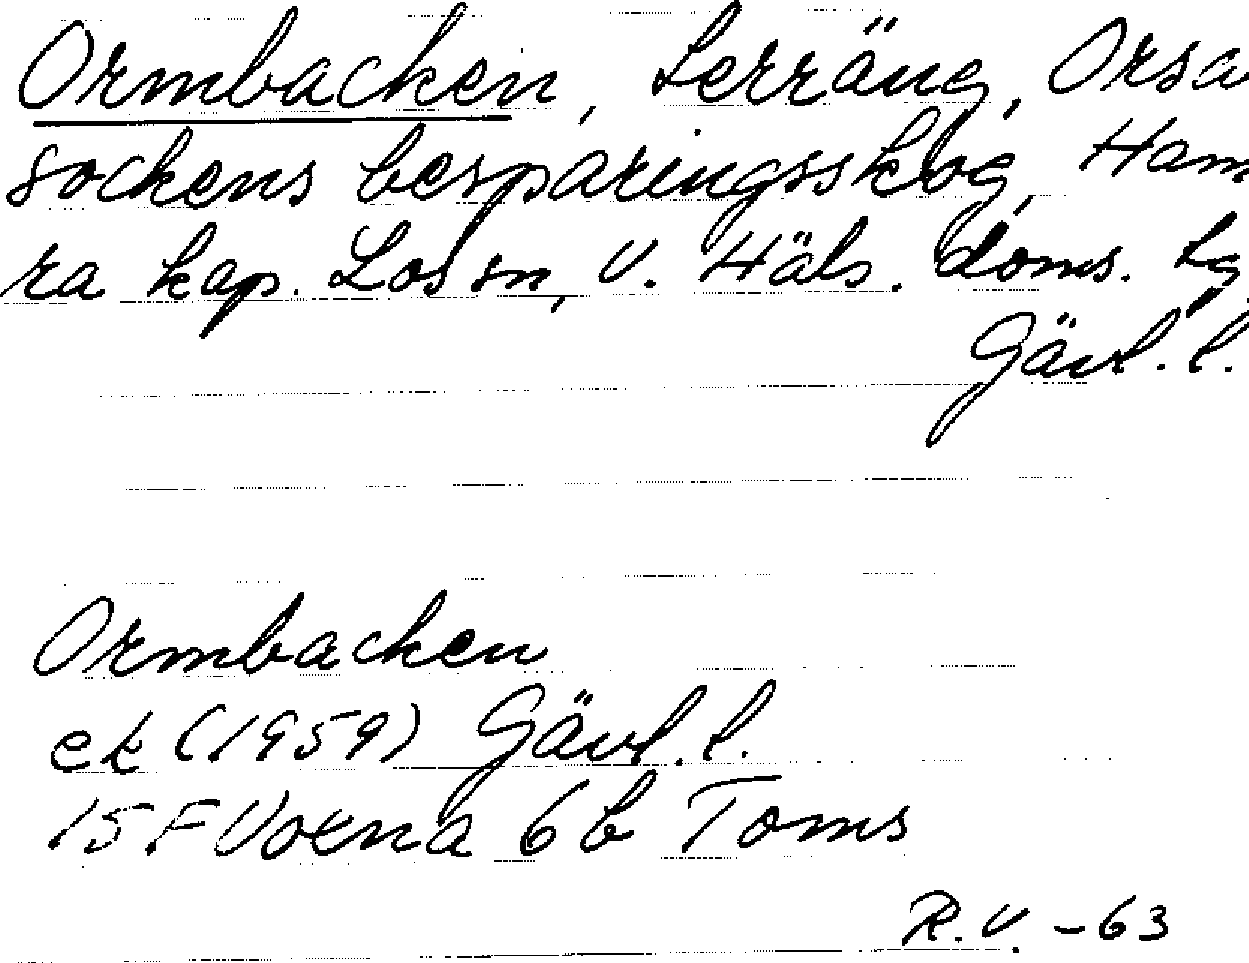 Ormbacken, terräng, Orsa
sockens besparingsskog, Ham
ra kap. Los sn, V. Häls. doms. tg
Gävl. l.
Ormbacken
ek (1959) Gävl. l.
15 F Voxna 6b Toms
R.V. -63